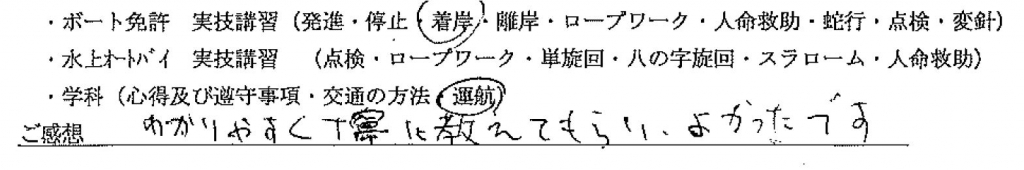 ・ボート免許　実技講習（発進・停止・着岸・離岸・ロープワーク・人命救助・蛇行・点検・変針）
・水上オートバイ　実技講習　（点検・ロープワーク・単旋回・八の字旋回・スラローム・人命救助）
・学科（心得及び遵守事項・交通の方法・運航）
ご感想　わかりやすく丁寧に教えてもらい、よかったです